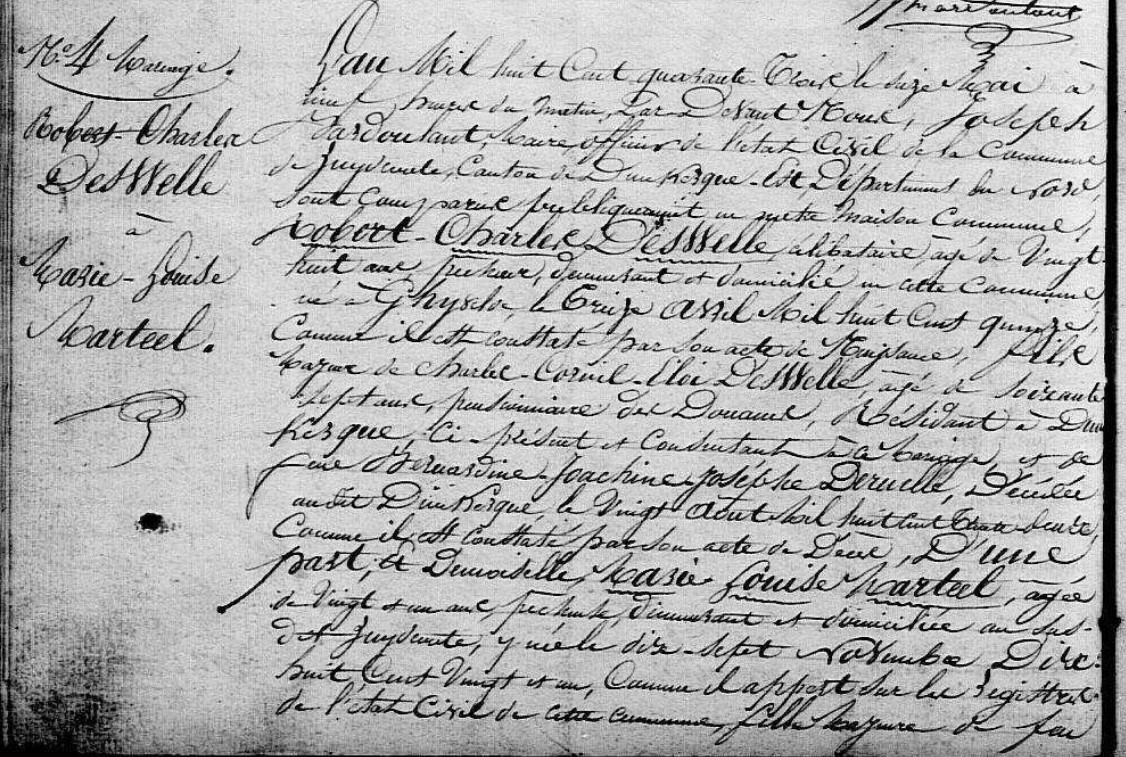 N.o 4 Mariage.
Robert-Charles
DesWelle
à
Marie-Louise
Marteel.
L'an Mil huit Cent quarante-Trois le seize Mai à
neuf heures du matin, Par Devant Nous, Joseph
Vardoulant, Maire officier de l'état Civil de la Commune
de Zuydcoote, Canton de Dunkerque-Est Département du Nord,
sont Comparus publiquement en notre Maison Commune,
Robert-Charles DesWelle, célibataire, agé de Vingt
huit ans, pecheur, demeurant et domicilié en cette Commune,
né à Ghyvelde, le Treize Avril Mil huit Cent quinze,
Comme il est constaté par son acte de Naissance, fils
Majeur de Charles-Cornil-Eloi DesWelle, agé de soixante
sept ans, pensionnaire des Douanes, Résidant à Dun
Kerque, Ci-présent et Consentant à ce Mariage, et de
feue Bernardine-Joachine-Joséphe Deruelle, Décédée
audit Dunkerque, le Vingt Aout Mil huit Cent Trente
Comme il est constaté par son acte de Décès, D'une
part, Et Demoiselle, Marie Louise Marteel, agée
de Vingt et un ans, demeurant et domiciliée au sus-
dit Zuydcoote, y née le dix-sept Novembre Dix-
huit Cent Vingt et un, Comme il appert sur les Registres
de l'état Civil de cette commune, fille Majeure de feu